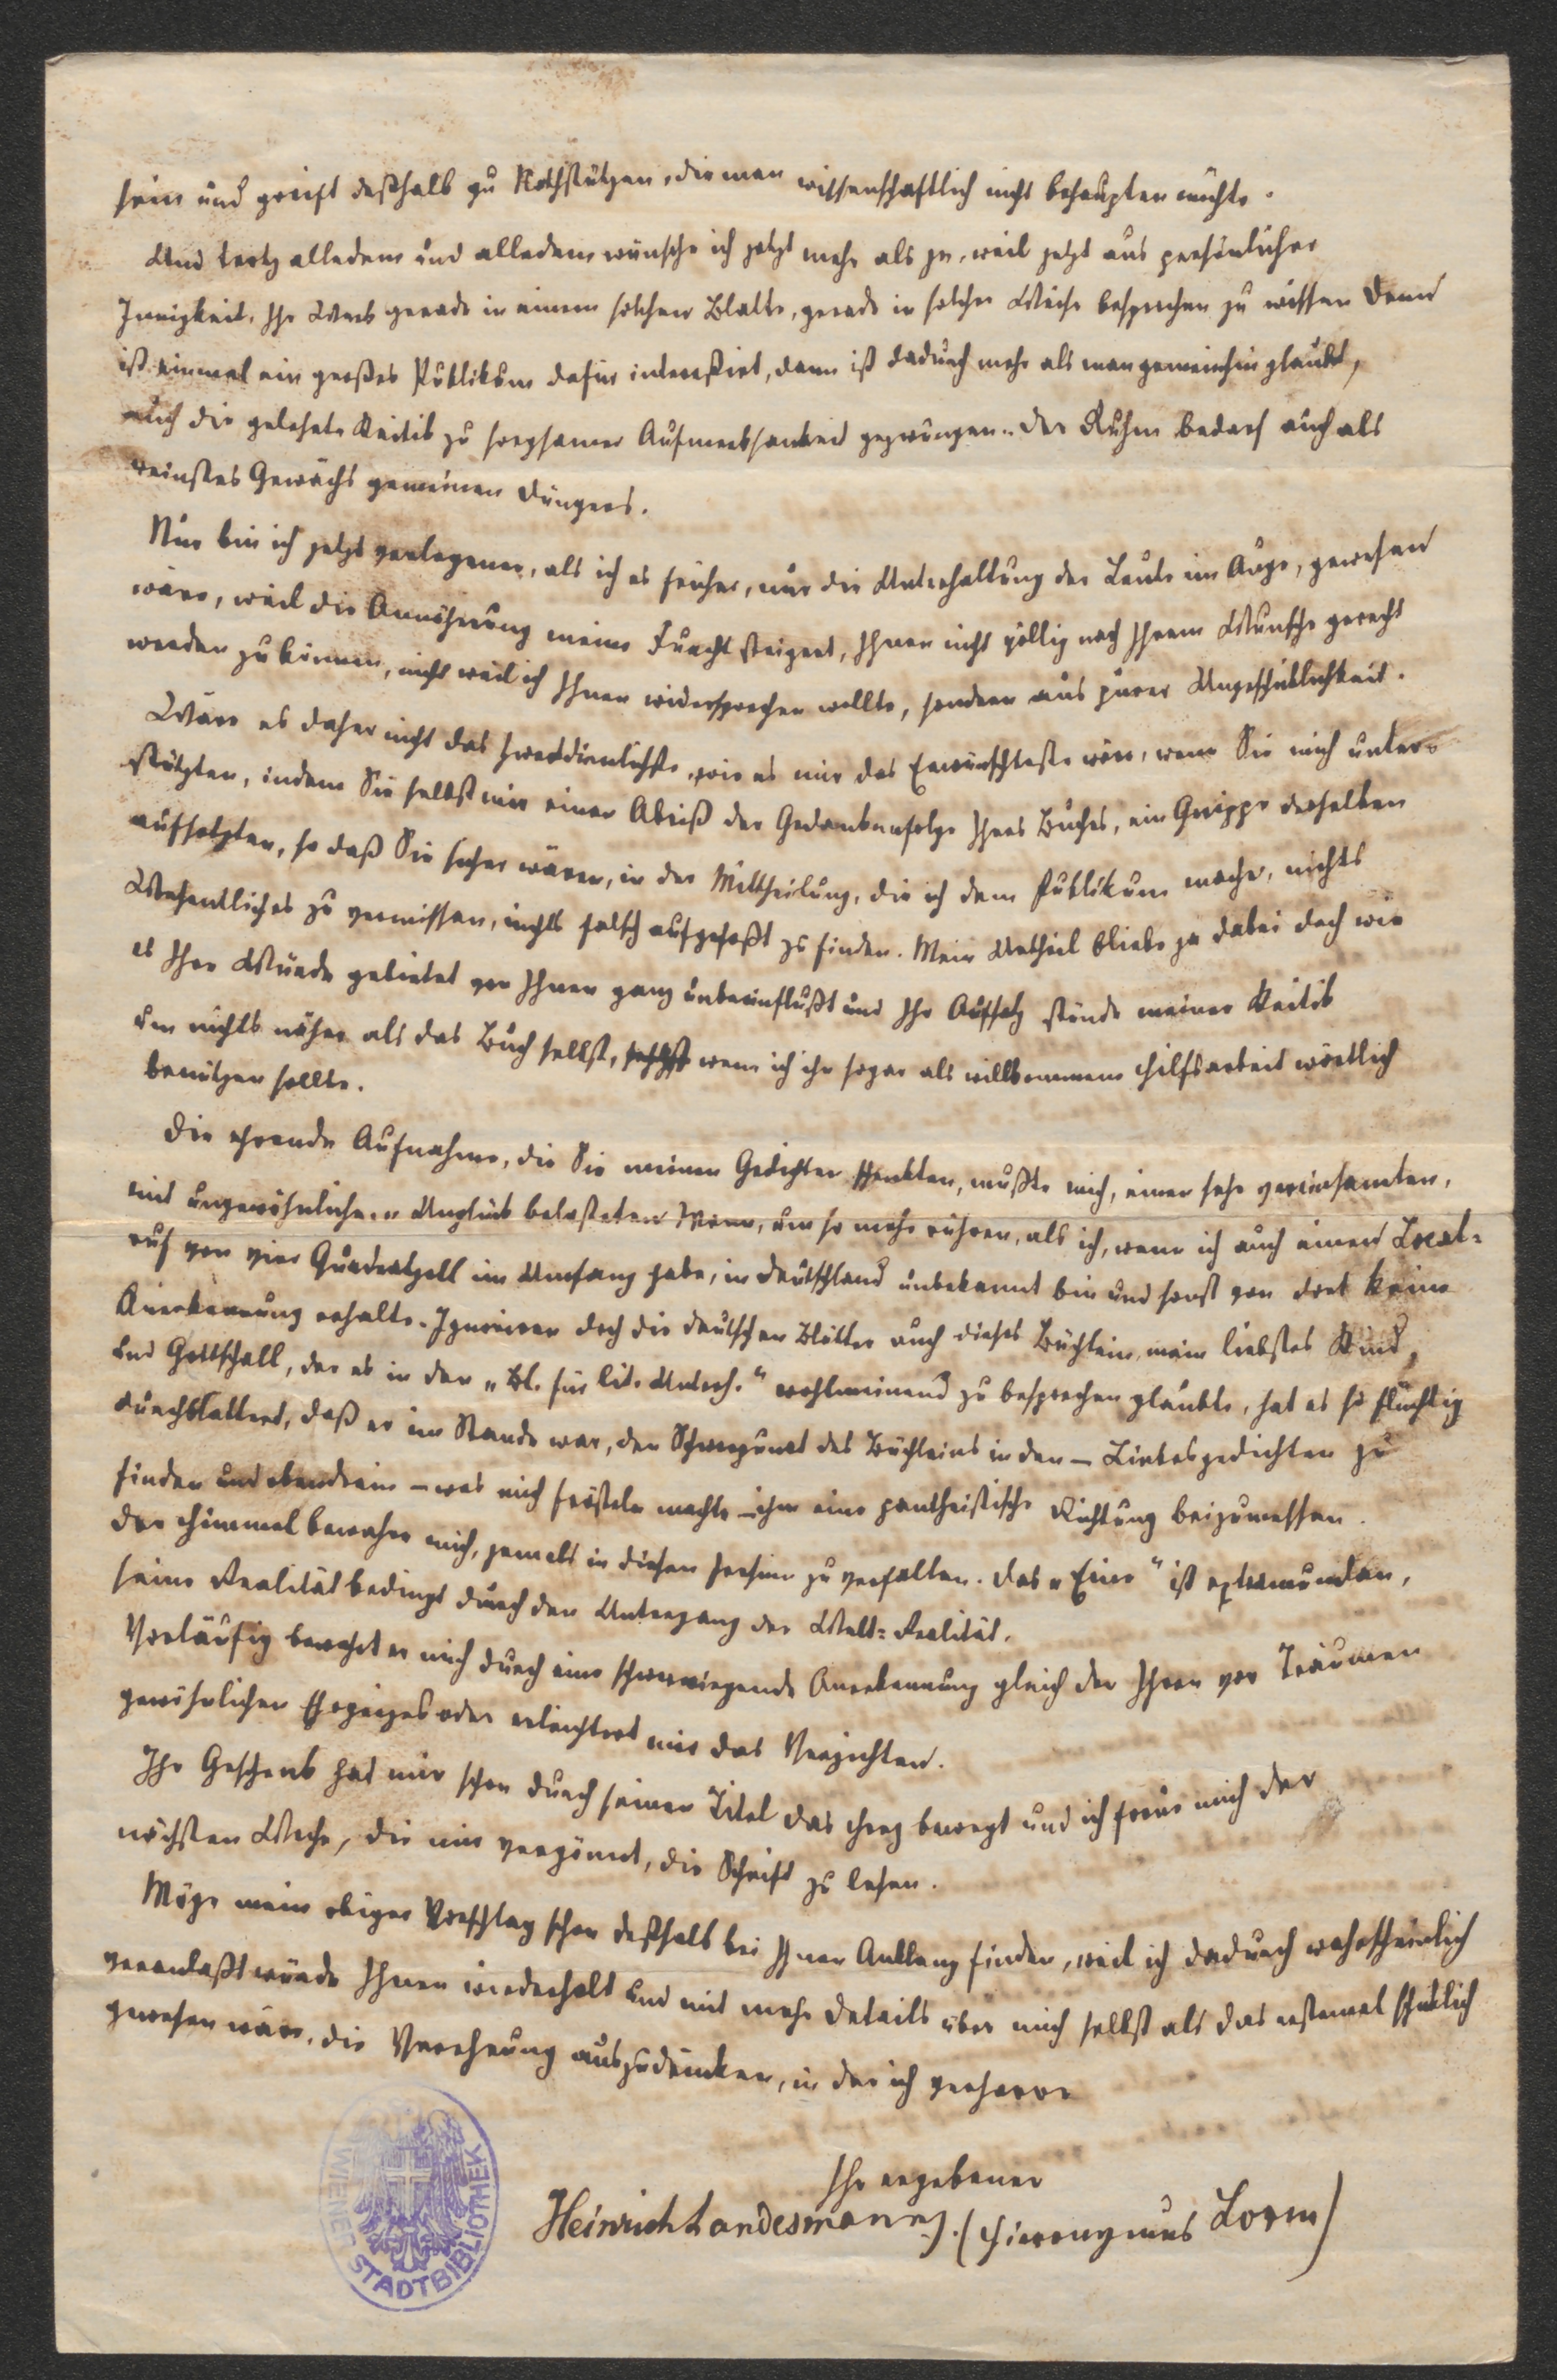 sein und greift deßhalb zu Nothstützen, die man wissenschaftlich nicht behaupten möchte.
Und trotz alledem und alledem wünsche ich jetzt mehr als je, weil jetzt aus persönlicher
Innigkeit, Ihr Werk gerade in einem solchen Blatte, gerade in solcher Weise besprochen zu wissen denn
ist einmal ein großes Publikum dafür interessirt, dann ist dadurch mehr als man gemeinhin glaubt,
auch die gelehrte Kritik zu sorgsamer Aufmerksamkeit gezwungen. Der Ruhm bedarf auch als
reinstes Gewächs gemeinen Düngers.
Nur bin ich jetzt verlegener, als ich es früher, nur die Unterhaltung der Leute im Auge, gewesen
wäre, weil die Annäherung meine Furcht steigert, Ihnen nicht völlig nach Ihrem Wunsche gerecht
werden zu können, nicht weil ich Ihnen widersprechen wollte, sondern aus purer Ungeschicklichkeit.
Wäre es daher nicht das Zweckdienlichste, wie es mir das Erwünschteste wäre, wenn Sie mich unter-
stützten, indem Sie selbst mir einen Abriß der Gedankenfolge Ihres Buches, ein Gerippe desselben
aufsetzten, so daß Sie sicher wären, in der Mittheilung, die ich dem Publikum mache, nichts
Wesentliches zu vermissen, nichts falsch aufgefaßt zu finden. Mein Urtheil bliebe ja dabei doch wie
es Ihre Würde gebietet von Ihnen ganz unbeeinflußt und Ihr Aufsatz stünde meiner Kritik
um nichts näher als das Buch selbst, wenn ich ihn sogar als willkommene Hilfsarbeit wörtlich
benützen sollte.
Die ehrende Aufnahme, die Sie meinen Gedichten schenkten, mußte mich, einen sehr vereinsamten,
mit ungewöhnlichem Unglück belasteten Mann, um so mehr rühren, als ich, wenn ich auch einen Local-
ruf von vier Quadratzoll im Umfang habe, in Deutschland unbekannt bin und sonst von dort keine
Anerkennung erhalte. Ignoriren doch die deutschen Blätter auch dieses Büchlein, mein liebstes Kind,
und Gottschall, der es in den „Bl. für lit. Unterh." wohlmeinend zu besprechen glaubte, hat es so flüchtig
durchblättert, daß er im Stande war, den Schwerpunct des Büchleins in den – Liebesgedichten zu
finden und obendrein – was mich frösteln machte – ihm eine pantheistische Richtung beizumessen.
Der Himmel bewahre mich, jemals in diesen Irrsinn zu verfallen. Das „Eine" ist extramundan,
seine Realität bedingt durch den Untergang der Welt-Realität.
Vorläufig bewahrt er mich durch eine schwerwiegende Anerkennung gleich der Ihren vor Träumen
gewöhnlichen Ehrgeizes oder erleichtert mir das Verzichten.
Ihr Geschenk hat mir schon durch seinen Titel das Herz bewegt und ich freue mich der
nächsten Woche, die mir vergönnt, die Schrift zu lesen.
Möge mein obiger Vorschlag schon deßhalb bei Ihnen Anklang finden, weil ich dadurch wahrscheinlich
veranlaßt würde Ihnen wiederholt und mit mehr Details über mich selbst als das erstemal schicklich
gewesen wäre, die Verehrung auszudrücken, in der ich verharre
Ihr ergebener
Heinrich Landesmann. (Hieronymus Lorm)
WIENER STADTBIBLIOTHEK